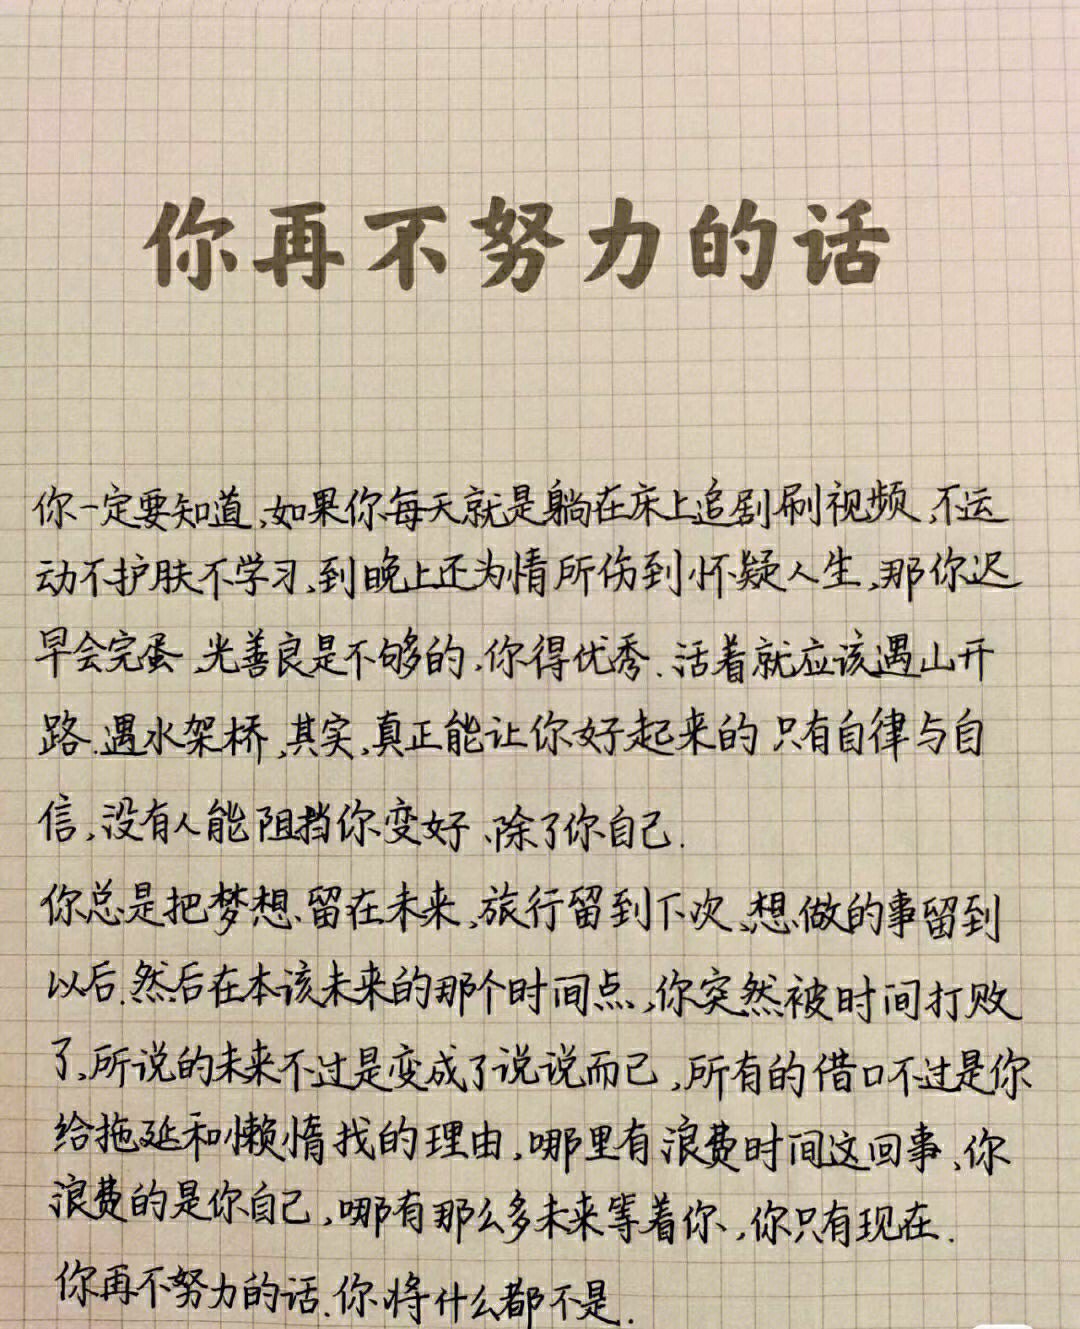 你再不努力的话
你一定要知道,如果你每天就是躺在床上追剧刷视频,不运
动不护肤不学习,到晚上还为情所伤到怀疑人生,那你迟
早会完蛋 光善良是不够的,你得优秀.活着就应该遇山开
路.遇水架桥,其实,真正能让你好起来的 只有自律与自
信,没有人能阻挡你变好、除了你自己.
你总是把梦想、留在未来,旅行留到下次、想做的事留到
以后.然后在本该未来的那个时间点,你突然被时间打败
了,所说的未来不过是变成了说说而已,所有的借口不过是你
给拖延和懒惰找的理由,哪里有浪费时间这回事、你
浪费的是你自己,哪有那么多未来等着你,你只有现在.
你再不努力的话.你将什么都不是.